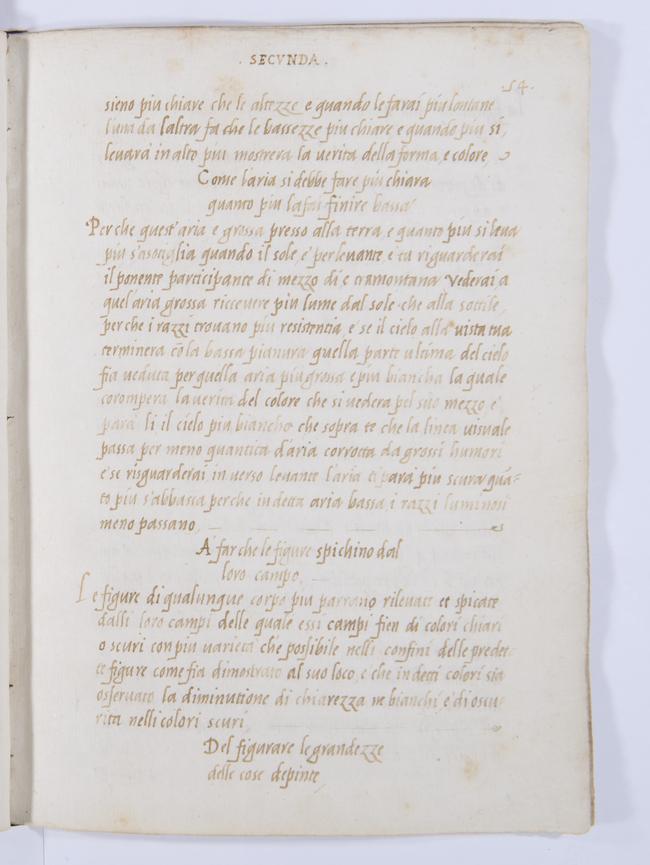 . SECVNDA .
54.
sieno piu chiare che le altezze e quando le farai piu lontane
l'una da l'altra fa che le bassezze piu chiare e quando piu si
leuarà in alto piu mostrera la uerita della forma e colore
Come laria si debbe fare piu chiara
quanto piu la fai finire bassa
Perche quest'aria e grossa presso alla terra e quanto piu si leua
piu s'asotiglia quando il sole e per leuante e tu riguarderai
il ponente participante di mezzo di e tramontana vederai a
quel'aria grossa riceuere piu lume dal sole che alla sottile,
perche i razzi trouano piu resistentia, e se il cielo alla vista tua
terminera cõ la bassa pianura quella parte ultima del cielo
fia ueduta per quella aria piu grossa e piu biancha la quale
corompera la uerita del colore che si uedera pel suo mezzo e
parà li il cielo piu biancho che sopra te che la linea uisuale
passa per meno quantita d'aria corrotta da grossi humori
e se risguarderai in uerso leuante l'aria ti parà piu scura quã=
to piu s'abbassa perche in detta aria bassa i razzi luminosi
meno passano,
A far che le figure spichino dal
loro campo,
Le figure di qualunque corpo piu parrano rileuate et spicate
dalli loro campi delle quale essi campi fien di colori chiari
o scuri con piu uarieta che possibile nelli confini delle predet-
te figure come fia dimostrato al suo loco, e che in detti colori sia
osseruato la diminutione di chiarezza ne bianchi e di oscu-
rita nelli colori scuri,
Del figurare le grandezze
delle cose depinte,